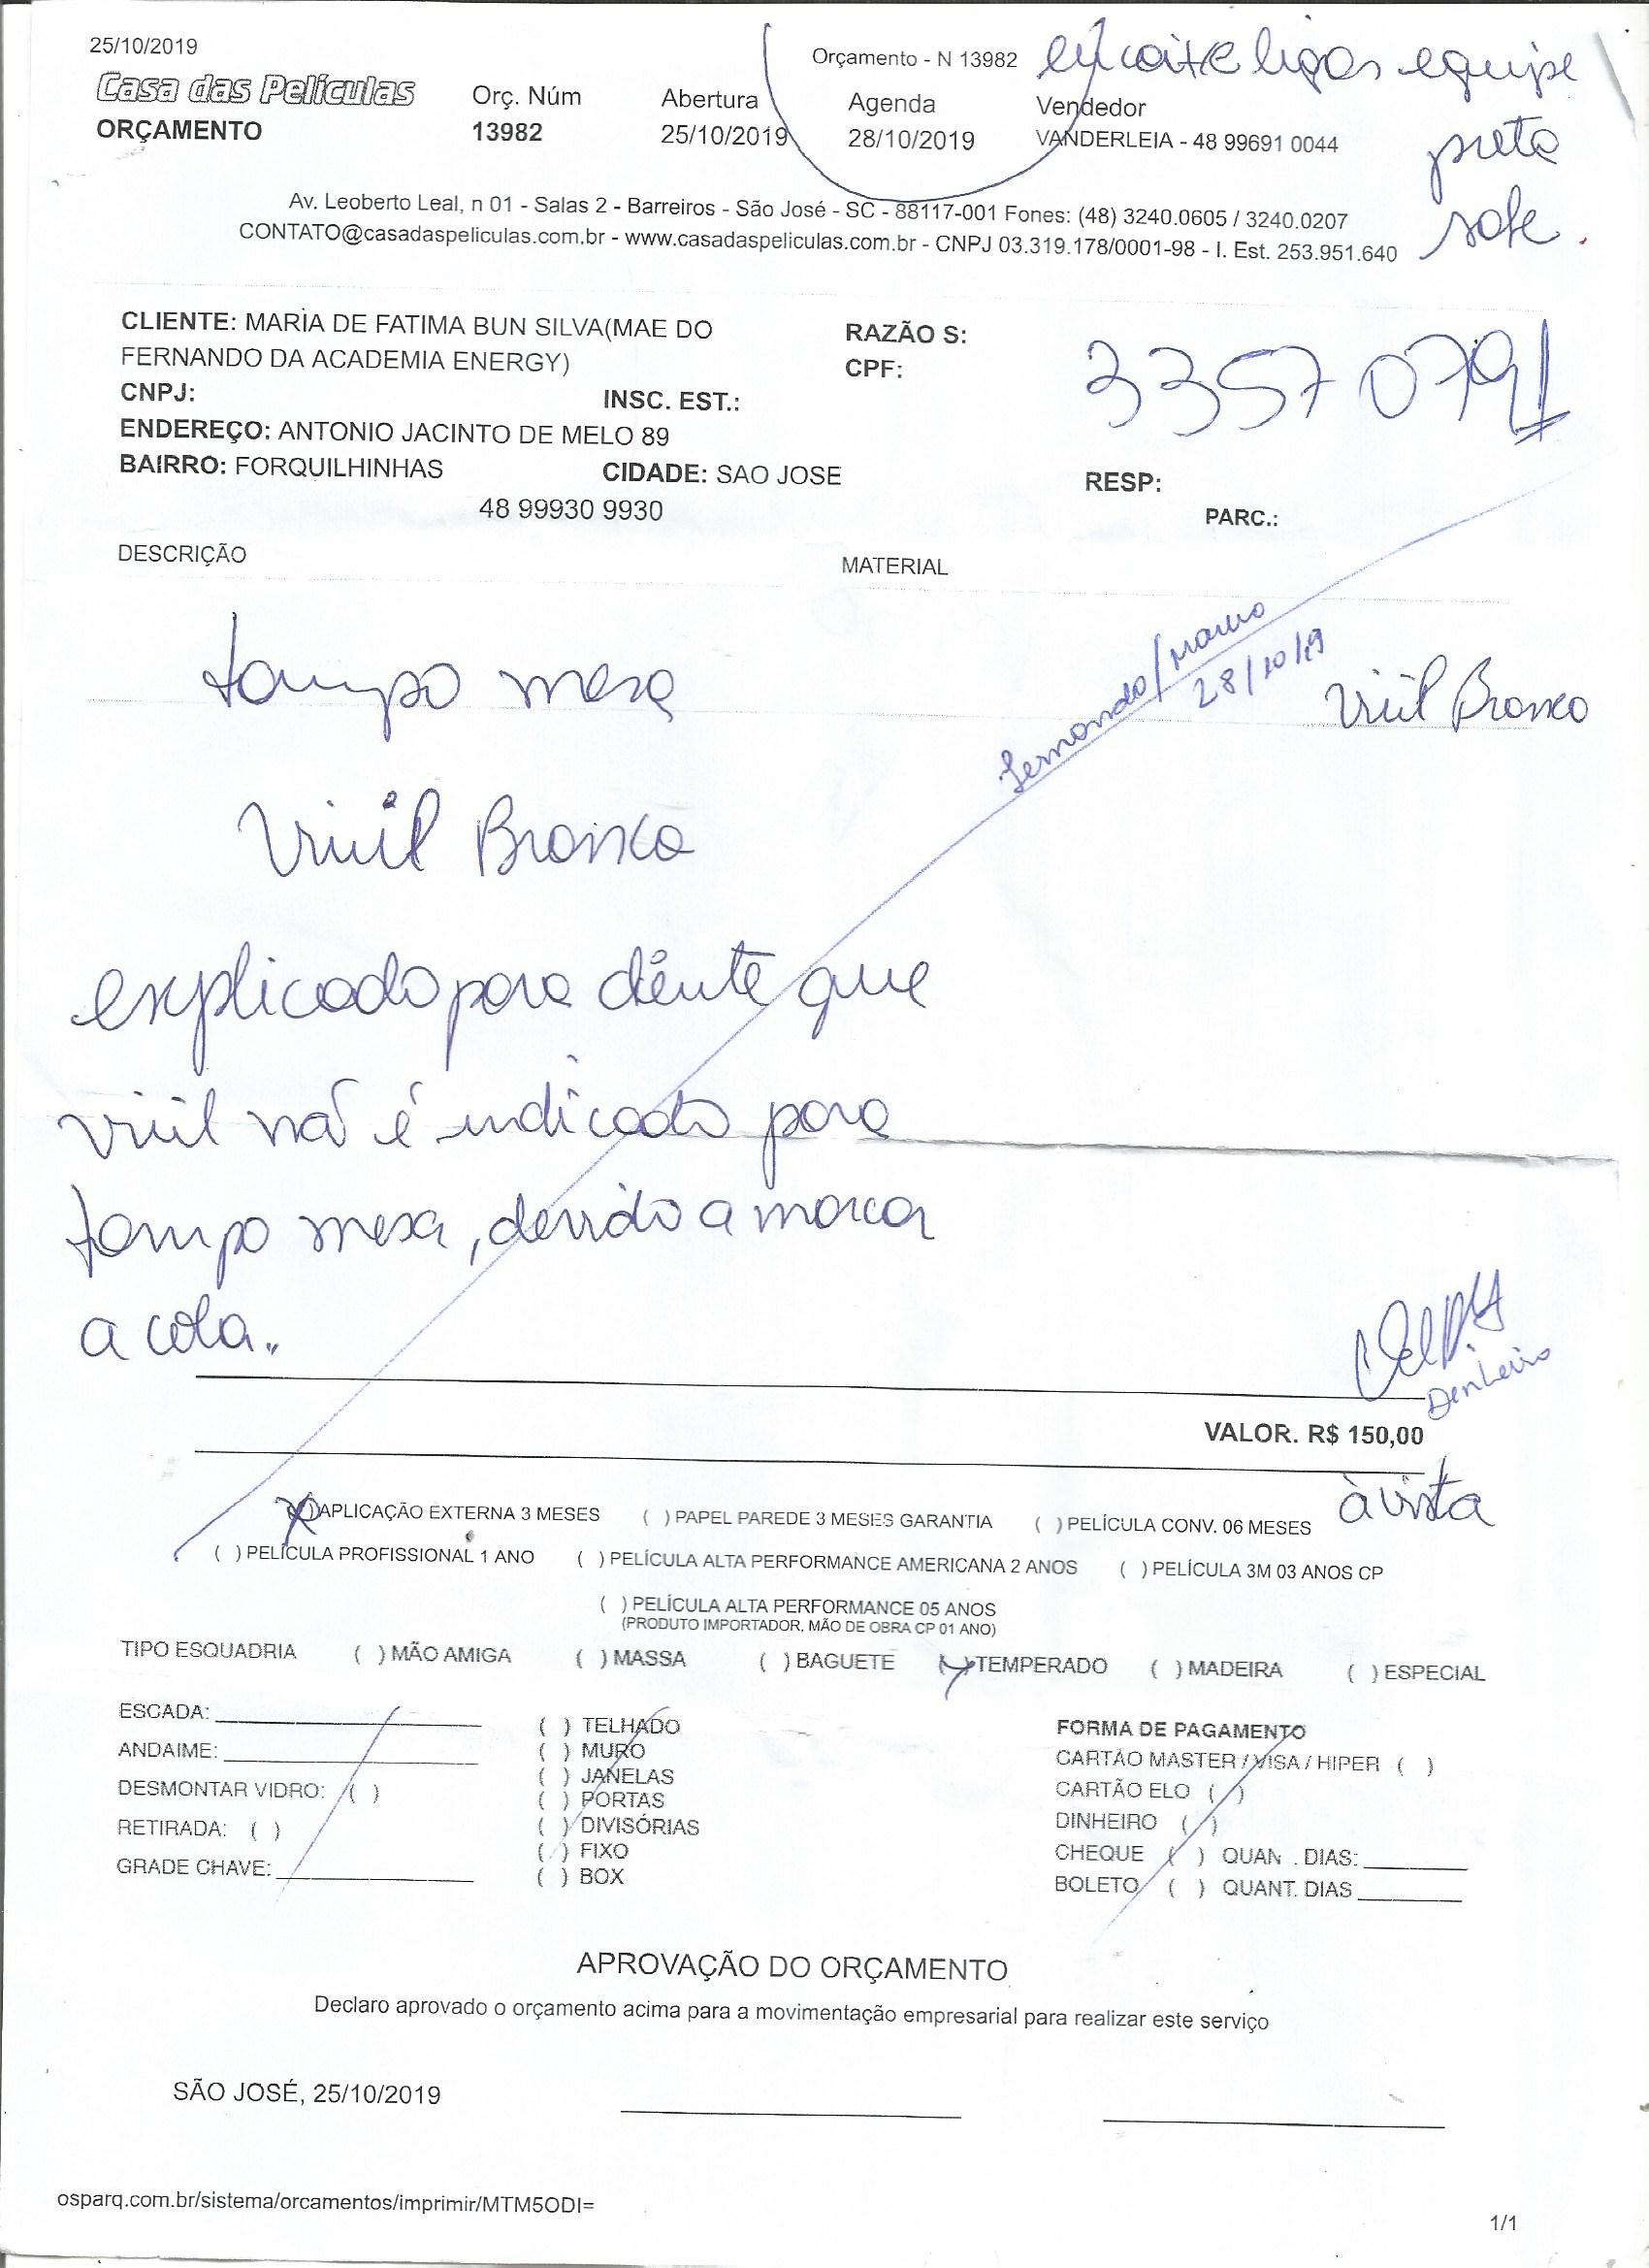 25/10/2019
Orçamento - N 13982
encaixe ligar equipe
Casa das Películas
ORÇAMENTO
Orç. Núm
13982
Abertura
25/10/2019
Agenda
28/10/2019
Vendedor
VANDERLEIA - 48 99691 0044
Av. Leoberto Leal, n 01 - Salas 2 - Barreiros - São José - SC - 88117-001 Fones: (48) 3240.0605 / 3240.0207
CONTATO@casadaspeliculas.com.br - www.casadaspeliculas.com.br - CNPJ 03.319.178/0001-98 - I. Est. 253.951.640
CLIENTE: MARIA DE FATIMA BUN SILVA(MAE DO
FERNANDO DA ACADEMIA ENERGY)
RAZÃO S:
CPF:
3357 0791
CNPJ:
INSC. EST.:
ENDEREÇO: ANTONIO JACINTO DE MELO 89
BAIRRO: FORQUILHINHAS
CIDADE: SAO JOSE
RESP:
48 99930 9930
PARC.:
DESCRIÇÃO
MATERIAL
Fernando/
28/10/19
tampo mesa
Vinil Branco
Vinil Branco
explicado para cliente que
vinil não é indicado para
tampo mesa, devido a marca
a cola.
Denheiro
VALOR. R$ 150,00
à vista
(X)APLICAÇÃO EXTERNA 3 MESES ( )PAPEL PAREDE 3 MESES GARANTIA ( )PELÍCULA CONV. 06 MESES
( )PELÍCULA PROFISSIONAL 1 ANO ( )PELÍCULA ALTA PERFORMANCE AMERICANA 2 ANOS ( )PELÍCULA 3M 03 ANOS CP
( )PELÍCULA ALTA PERFORMANCE 05 ANOS
(PRODUTO IMPORTADOR, MÃO DE OBRA CP 01 ANO)
TIPO ESQUADRIA ( )MÃO AMIGA ( )MASSA ( )BAGUETE (X)TEMPERADO ( )MADEIRA ( )ESPECIAL
ESCADA:
ANDAIME:
DESMONTAR VIDRO: ( )
RETIRADA: ( )
GRADE CHAVE:
( ) TELHADO
( ) MURO
( ) JANELAS
( ) PORTAS
( ) DIVISÓRIAS
( ) FIXO
( ) BOX
FORMA DE PAGAMENTO
CARTÃO MASTER / VISA / HIPER ( )
CARTÃO ELO ( )
DINHEIRO ( )
CHEQUE ( ) QUAN . DIAS:
BOLETO ( ) QUANT. DIAS
APROVAÇÃO DO ORÇAMENTO
Declaro aprovado o orçamento acima para a movimentação empresarial para realizar este serviço
SÃO JOSÉ, 25/10/2019
osparq.com.br/sistema/orcamentos/imprimir/MTM5ODI=
1/1